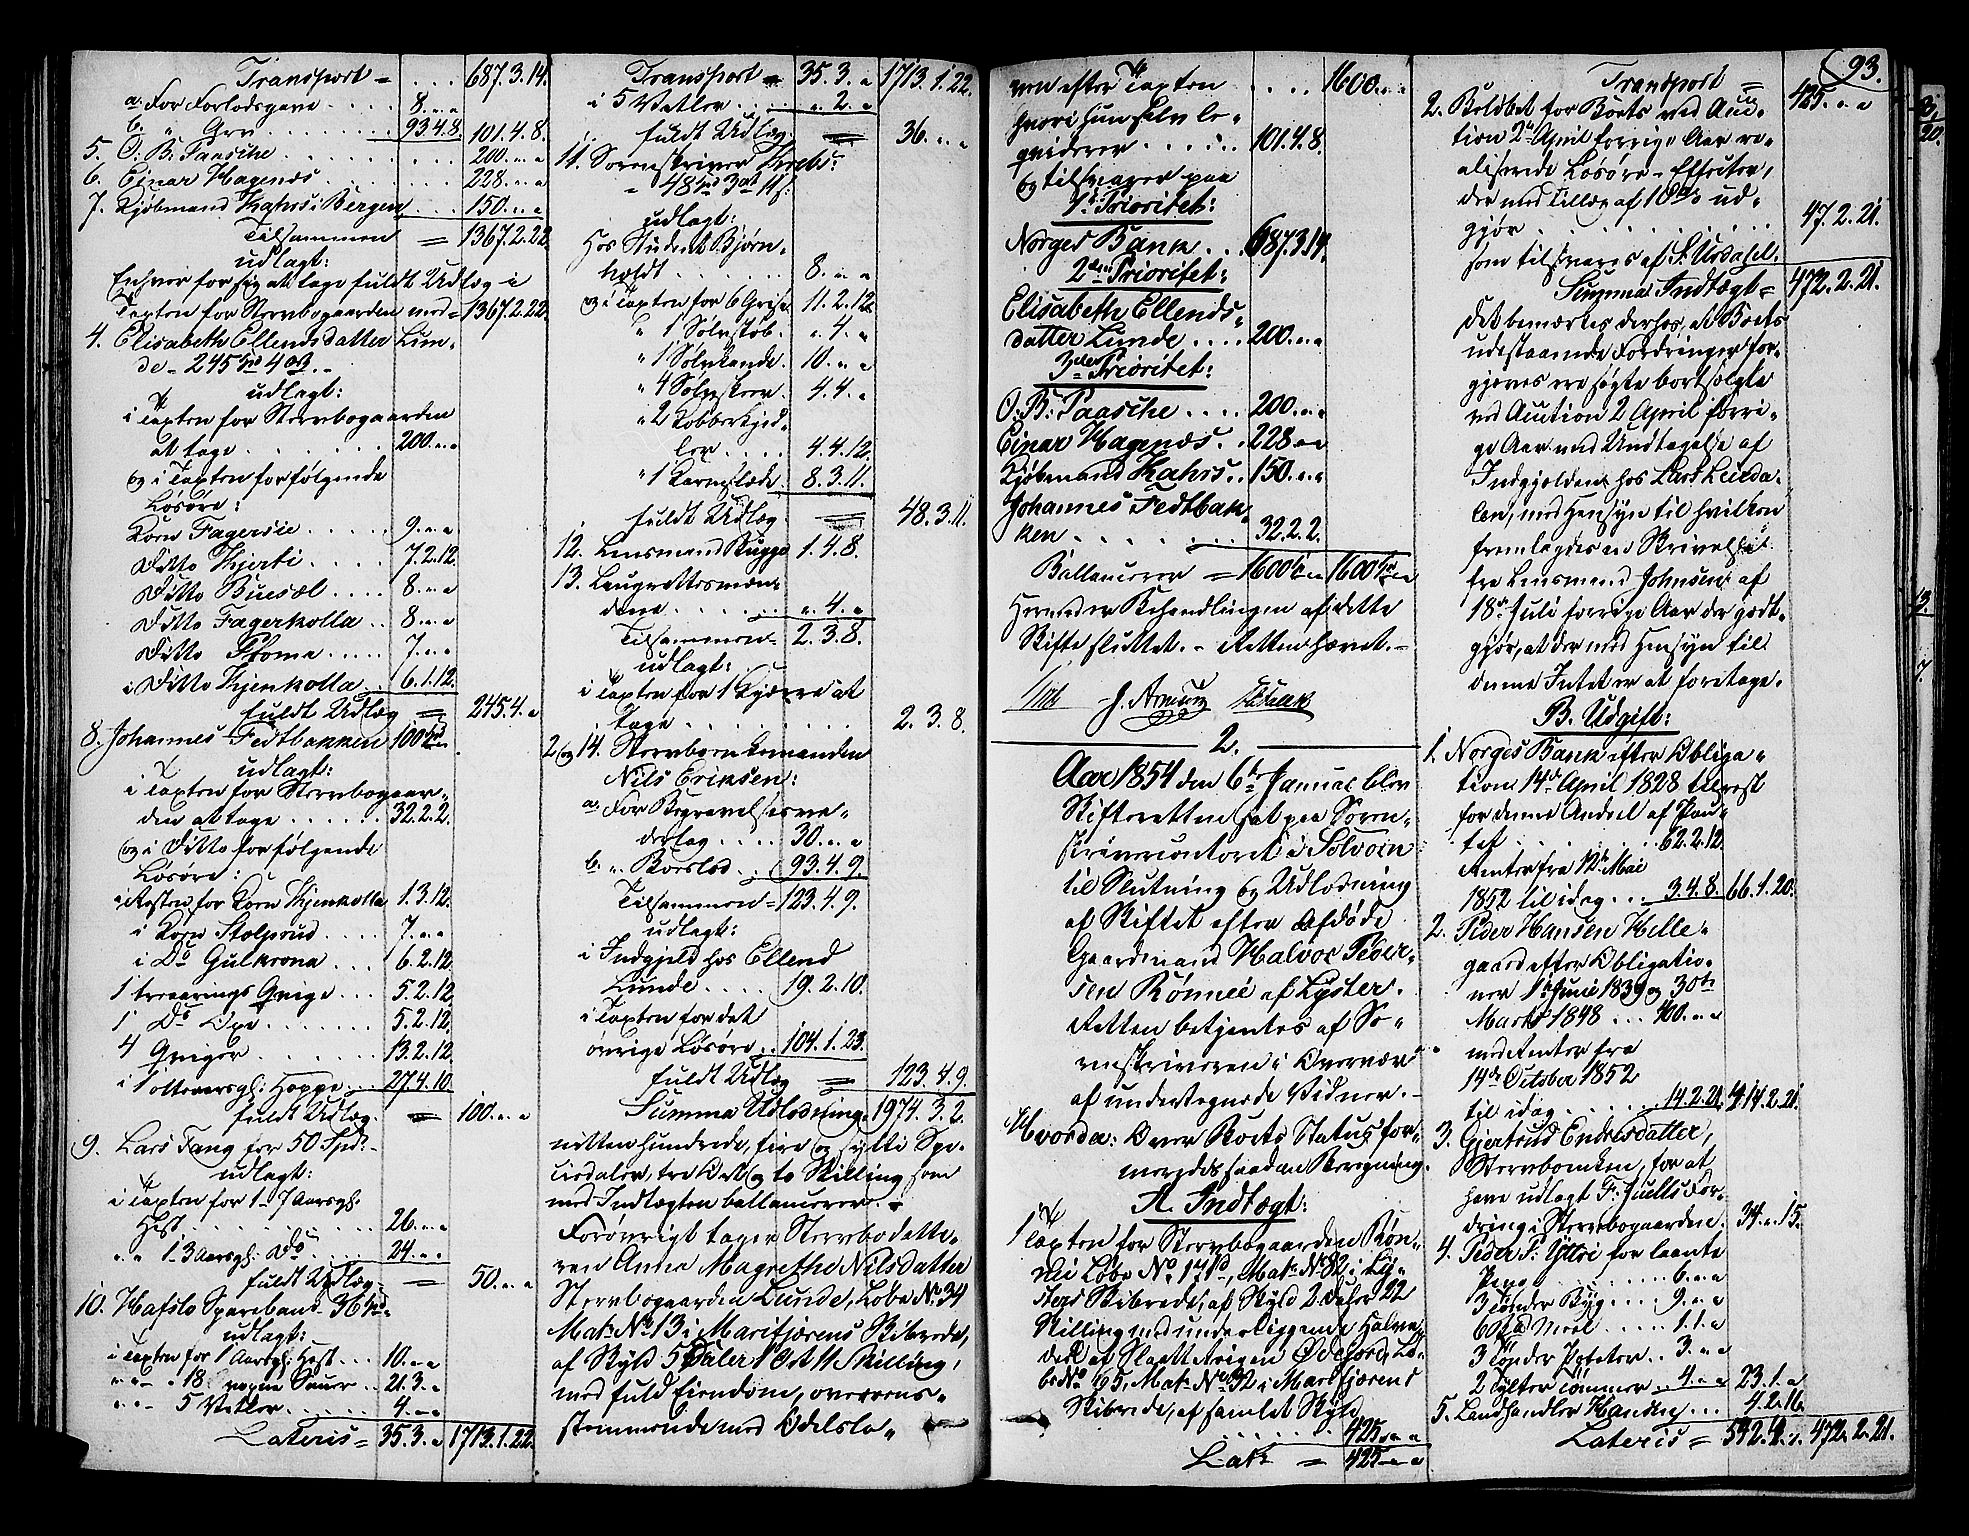 Transport = . . . 687.3.14.
a. For Forlodsgave . . . . 8.„.„
b. „ Arv . . . . . . . . 93.4.8. 101.4.8.
5. O. B. Paasche . . . . . . . . . 200.„.„
6. Einar Hagenæs . . . . . . . . 228.„.„
7. Kjøbmand Kahrs i Bergen . . . 150.„.„
Tilsammen = 1367.2.22.
udlagt:
Enhver for sig at tage fuldt Udlæg i
Taxten for Stervbogaarden med = 1367.2.22.
4. Elisabeth Ellendsdatter Lun-
de - 245 Spd 4 ort. -
udlagt:
i Taxten for Stervbogaarden
at tage . . . . . . . 200.„.„
og i Taxten for følgende
Løsøre:
Koen Fagersie . . . . . 9.„.„
Ditto Kjerti . . . . . 7.2.12.
Ditto Buesæl . . . . 8.„.„
Ditto Fagerkolla . . 8.„.„
Ditto Ploma . . . . . 7.„.„
i Ditto Hjenkolla . . 6.1.12.
fuldt Udlæg = 245.4.„
8. Johannes Fedtbakken 100 Spd
udlagt:
i Taxten for Stervbogaar-
den at tage . . . . . . 32.2.2.
og i Ditto for følgende
Løsøre:
i Resten for Koen Hjenkolla 1.3.12.
i Koen Stolprud . . . . 7.„.„
i Do Gulkrona . . . 6.2.12.
1 toaarings Qvige . . . 5.2.12.
1 Do Oxe . . . . . . . 5.2.12.
4 Qviger . . . . . . . . 13.2.12.
i 1 otteaarsgl: Hoppe . . . 27.4.10.
fuldt Udlæg = 100.„.„
9. Lars Fang for 50 Spd: -
udlagt:
i Taxten for 1 - 7 Aarsgl:
Hest . . . . . . . . . . 26.„.„
„ „ 1 - 3 Aarsgl: Do . . . . 24.„.„
fuldt Udlæg = 50.„.„
10. Hafslo Sparebank 36 Spd -
udlagt:
i Taxten for 1 Aarsgl: Hest . . . 10.„.„
„ „ - „ 18 Sauer . . 21.3.„
„ „ - 5 Vetler . . . . . 4.„.„
Lateris = 35.3.„ 1713.1.22.
Transport = 35.3.„ 1713.1.22.
i 5 Vetler . . . . „.2.„
fuldt Udlæg = 36.„.„
11. Sorenskriver Krebs:
- 48 Spd 3 ort 11 s:
udlagt:
Hos Student Bjørn-
holdt . . . . . . . 8.„.„
og i Taxten for 6 Grise 11.2.12.
„ 1 Sølvstob. „.4.„
„ 1 Sølvkande. 10.„.„
„ 4 Sølvskeer. 4.4.„
„ 2 Kobberkjed-
ler . . . . 4.4.12.
„ 1 Karmslæde. 8.3.11.
fuldt Udlæg = 48.3.11.
12. Lensmand Rygge 1.4.8.
13. Laugrettesmæn-
dene . . . . . . . „.4.„
Tilsammen = 2.3.8.
udlagt:
i Taxten for 1 Kjærre at
tage . . . . . . . . . . . 2.3.8.
2 og 14. Stervboenkemanden
Nils Eriksen:
a. For Begravelsesve-
derlag . . . . . 30.„.„
b. „ Boeslod . . 93.4.9.
Tilsammen = 123.4.9.
udlagt:
i Indgjeld hos Ellend
Lunde . . . . . 19.2.10.
i Taxten for det
øvrige Løsøre . . 104.1.23.
fuldt Udlæg = 123.4.9.
Summa Udlodning = 1974.3.2
nittenhundrede, fire og sytti Spe-
ciedaler, tre Ort og to Skilling som
med Indtægten ballancerer. -
Forøvrigt tager Stervbodatte-
ren Anna Magrethe Nilsdatter
Stervbogaarden Lunde, Løbe No 34
Mat: No 13 i Marifjærens Skibrede,
af Skyld 5 Daler 1 Ort 11 Skilling,
med fuld Eiendom, overens-
stemmende med Odelslo-
ven efter Taxten . . . . 1600.„.„
hvori hun selv li-
qviderer . . . . . . 101.4.8.
og tilsvarer paa
1ste Prioritet:
Norges Bank . . . 687.3.14.
2den Prioritet:
Elisabeth Ellends-
datter Lunde . . . . 200.„.„
3die Prioritet:
O. B. Paasche . . . . 200.„.„
Einar Hagenæs . . 228.„.„
Kjøbmand Kahrs . . 150.„.„
Johannes Fedtbak-
ken . . . . . . . . . 32.2.2.
Ballancerer = 1600 Spd 1600 Spd
Hermed er Behandlingen af dette
Skifte sluttet. - Retten hævet. -
2.
Aar 1854 den 6te Januar blev
Skifteretten sat paa Soren-
skrivercontoret i Solvorn
til Slutning og Udlodning
af Skiftet efter Afdøde
Gaardmand Halvor Peder-
sen Rønnei af Lyster.
Retten betjentes af So-
renskriveren i Overvær
af undertegnede Vidner. -
Hvorda: Over Boets Status for-
meredes saadan Beregning.
A. Indtægt:
1 Taxten for Stervbogaarden Røn-
nei Løbe No 171d, Mat: No 82 i Ly-
sters Skibrede, af Skyld 2 Daler 22
Skilling med underliggende Halve-
del af Slaatteteigen Ødefjord, Lø-
be No 65, Mat: No 32 i Marifjærens
Skibrede, af samlet Skyld
. . . . . . . . 425.„.„
Lats = 425.„.„
93.
Transport = 425.„.„
2. Beløbet for Boets ved Auc-
tion 2den April forrige Aar re-
aliserede Løsøre-Effecter,
der med Tillæg af 10 pCt ud-
gjør . . . . . . . . . . . 47.2.21.
som tilsvares af S. Urdahl.
Summa Indtægt = 472.2.21.
Det bemærkes derhos, at Boets
udestaaende Fordringer for-
gjeves ere søgte bortsolgte
ved Auction 2 April forri-
ge Aar med Undtagelse af
Indgjelden hos Lars Leirda-
len, med Hensyn til hvilken
fremlagdes en Skrivelse
fra Lensmand Johnsen af
18de Juli forrige Aar der godt-
gjør, at der med Hensyn til
denne Intet er at foretage.
B. Udgift:
1. Norges Bank efter Obliga-
tion 14de April 1828 tilrest
for denne Andeel af Pan-
tet . . . . . . . . 62.2.12
Renter fra 12te Mai
1852 til idag . . . 3.4.8. 66.1.20.
2. Peder Hansen Helle-
gaard efter Obligatio-
ner 1ste Juni 1839 og 30te
Marts 1848 . . . 400.„.„
med Renter fra
14de October 1852
til idag . . . . . . . 14.2.21. 414.2.21.
3. Gjertrud Endresdatter,
Stervboenken, for at
have udlagt F: Juells For-
dring i Stervbogaarden. 34.„.15.
4. Peder P: Ytteri for laante
Penge . . . . . . . . . 6.„.„
3 Tønder Byg . . . . 9.„.„
6 Meel . . . . . 1.1.„
3 Tønder Poteter . . 3.„.„
2 Tylter Tømmer . . 4.„.„ 23.1.„
5. Landhandler Hansen . . . 4.2.16.
Lateris = 542.2.„. 472.2.21.